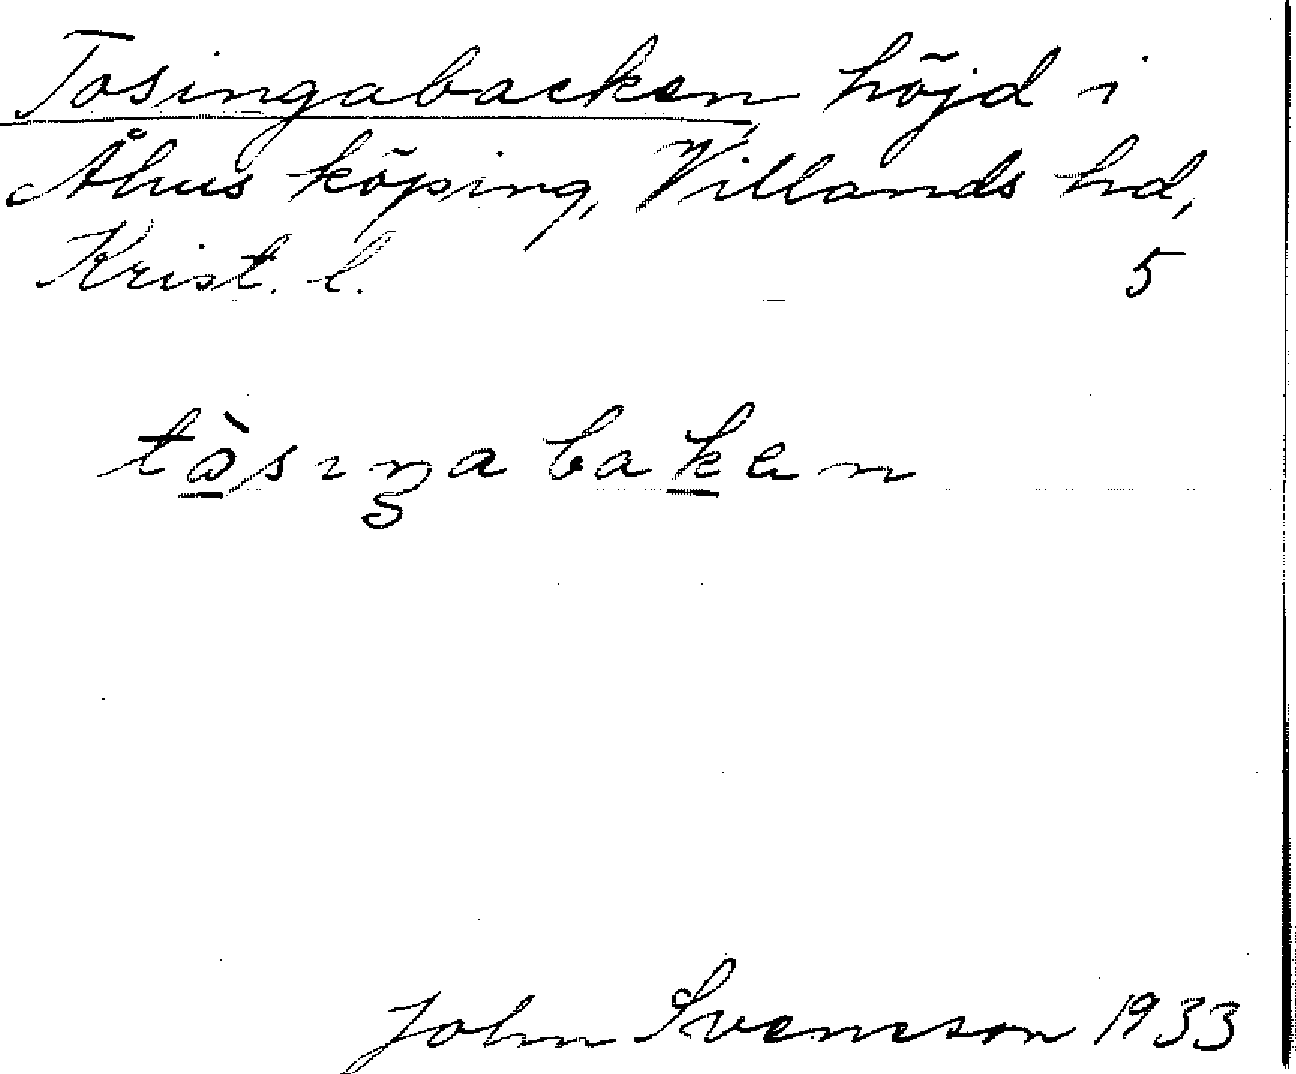 Tosingabacken höjd i
Åhus köping, Villands hd,
Krist. l. 5
tòsıŋabakan
John Svensson 1933